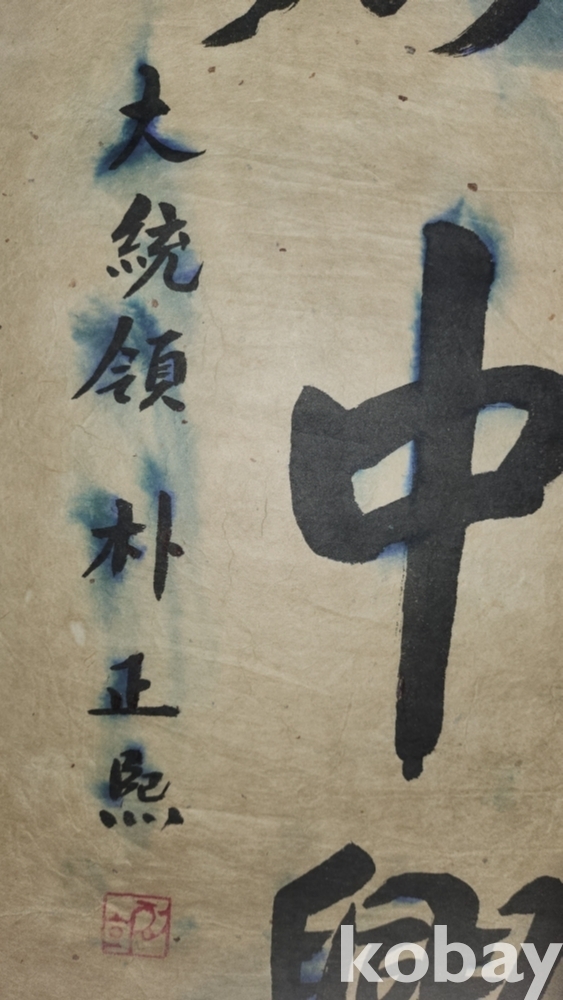 中
大統領 朴正熙
kobay